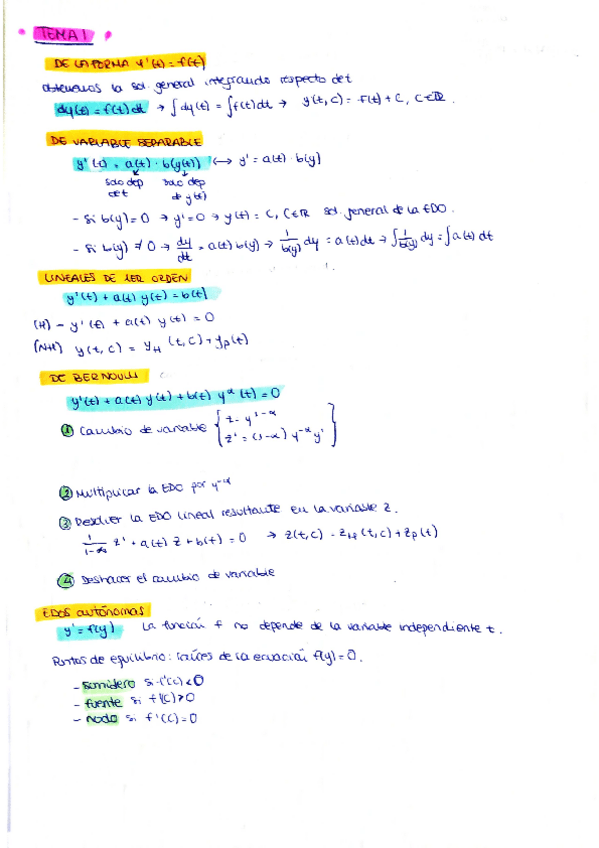 TEMA 1
DE LA FORMA y'(t) = f(t)
obtenemos la sol. general integrando respecto de t
dy(t) = f(t) dt → ∫dy(t) = ∫f(t) dt → y(t, C) = F(t) + C, C∈ℝ.
DE VARIABLE SEPARABLE
y'(t) = a(t) · b(y(t)) ⟷ y' = a(t) · b(y)
solo dep de t
solo dep de y(t)
- Si b(y) = 0 → y' = 0 → y(t) = C, C∈ℝ sol. general de la EDO.
- Si b(y) ≠ 0 → dy/dt = a(t) b(y) → 1/b(y) dy = a(t) dt → ∫ 1/b(y) dy = ∫ a(t) dt
LINEALES DE 1ER ORDEN
y'(t) + a(t) y(t) = b(t)
(H) - y'(t) + a(t) y(t) = 0
(NH) y(t, C) = yH (t, C) + yp(t)
DE BERNOULLI
y'(t) + a(t) y(t) + b(t) y^α (t) = 0
① Cambio de variable { z = y^1-α
z' = (1-α) y^-α y' }
② Multiplicar la EDO por y^-α
③ Resolver la EDO lineal resultante en la variable z.
1/1-α z' + a(t) z + b(t) = 0 → z(t, C) = zH (t, C) + zp(t)
④ Deshacer el cambio de variable
EDOS autónomas
y' = f(y) La función f no depende de la variable independiente t.
Puntos de equilibrio: raíces de la ecuación f(y) = 0.
- sumidero si f'(C) < 0
- fuente si f'(C) > 0
- nodo si f'(C) = 0